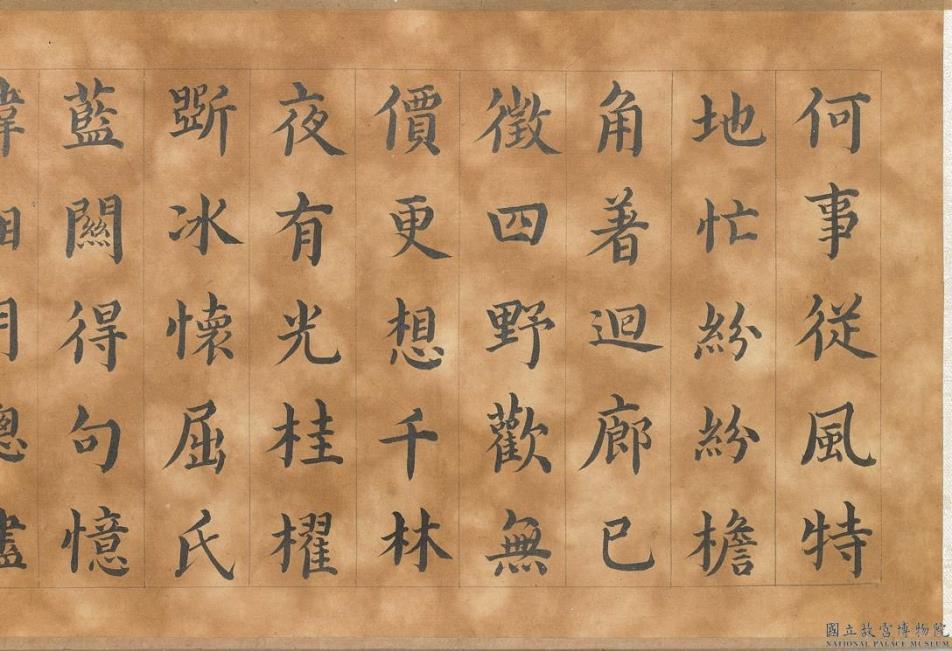 何事従風特
地忙紛紛檐
角著迴廊已
徵四野歡無
價更想千林
夜有光桂櫂
斵冰懷屈氏
藍關得句憶
國立故宮博物院
NATIONAL PALACE MUSEUM